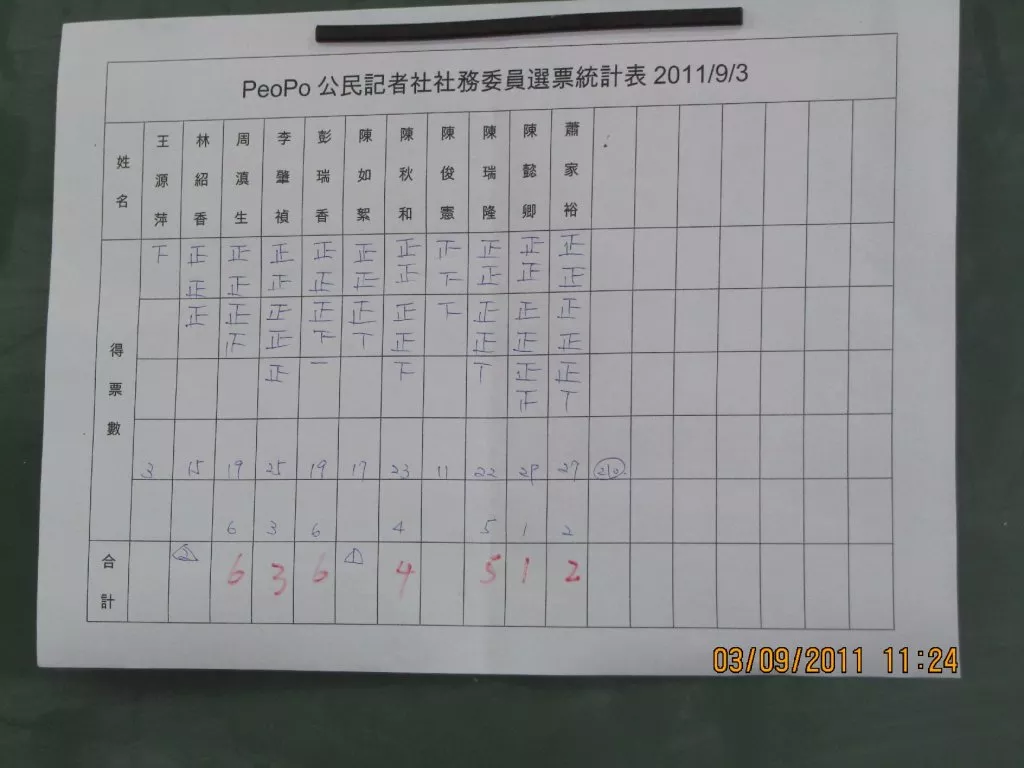 PeoPo 公民記者社社務委員選票統計表 2011/9/3
姓名 王源萍 林紹香 周滇生 李肇禎 彭瑞香 陳如絮 陳秋和 陳俊憲 陳瑞隆 陳懿卿 蕭家裕
下 正 正 正 正 正 正 正 正 正 正
正 正 正 正 正 正 下 正 正 正
正 正 正 正 正 正 下 正 正 正
下 正 下 丅 正 正 正 正
正 一 下 丅 正 正
正 丅
得票數
3 15 19 25 19 17 23 11 22 29 27 210
6 3 6 4 5 1 2
合計 2 6 3 6 1 4 5 1 2
03/09/2011 11:24